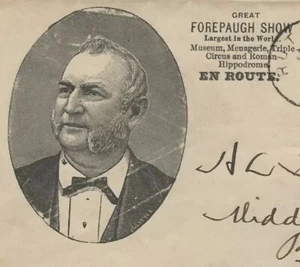 GREAT
FOREPAUGH SHOW
Largest in the World.
Museum, Menagerie, Triple
Circus and Roman
Hippodrome,
EN ROUTE.